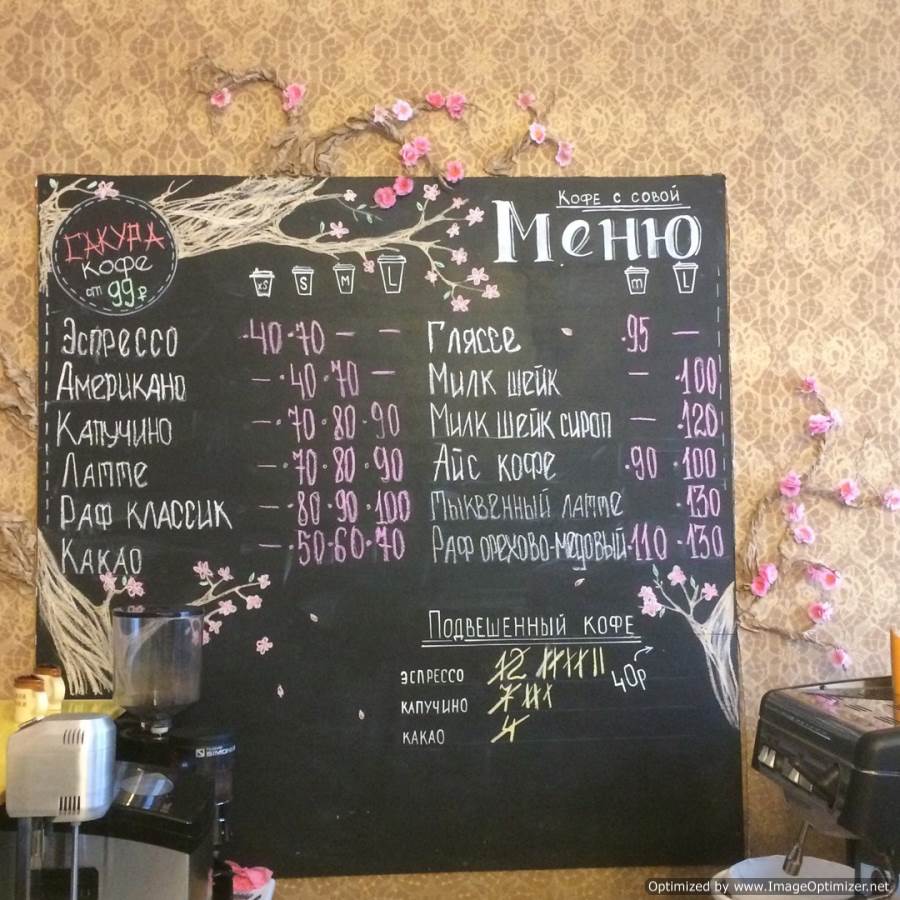 Кофе с совой
Меню
САКУРА
кофе
от 99₽
xs S M L
Эспрессо -40 -70 — —
Американо — -40 -70 —
Капучино — -70 -80 -90
Латте — -70 -80 -90
Раф классик — -80 -90 -100
Какао — -50 -60 -70
m L
Гляссе -95 —
Милк шейк — -100
Милк шейк сироп — -120
Айс кофе -90 -100
Тыквенный латте -130
Раф орехово-медовый -110 -130
Подвешенный кофе
эспрессо 12
40р
капучино 7
какао 4
SIMONELLI
Optimized by www.ImageOptimizer.net